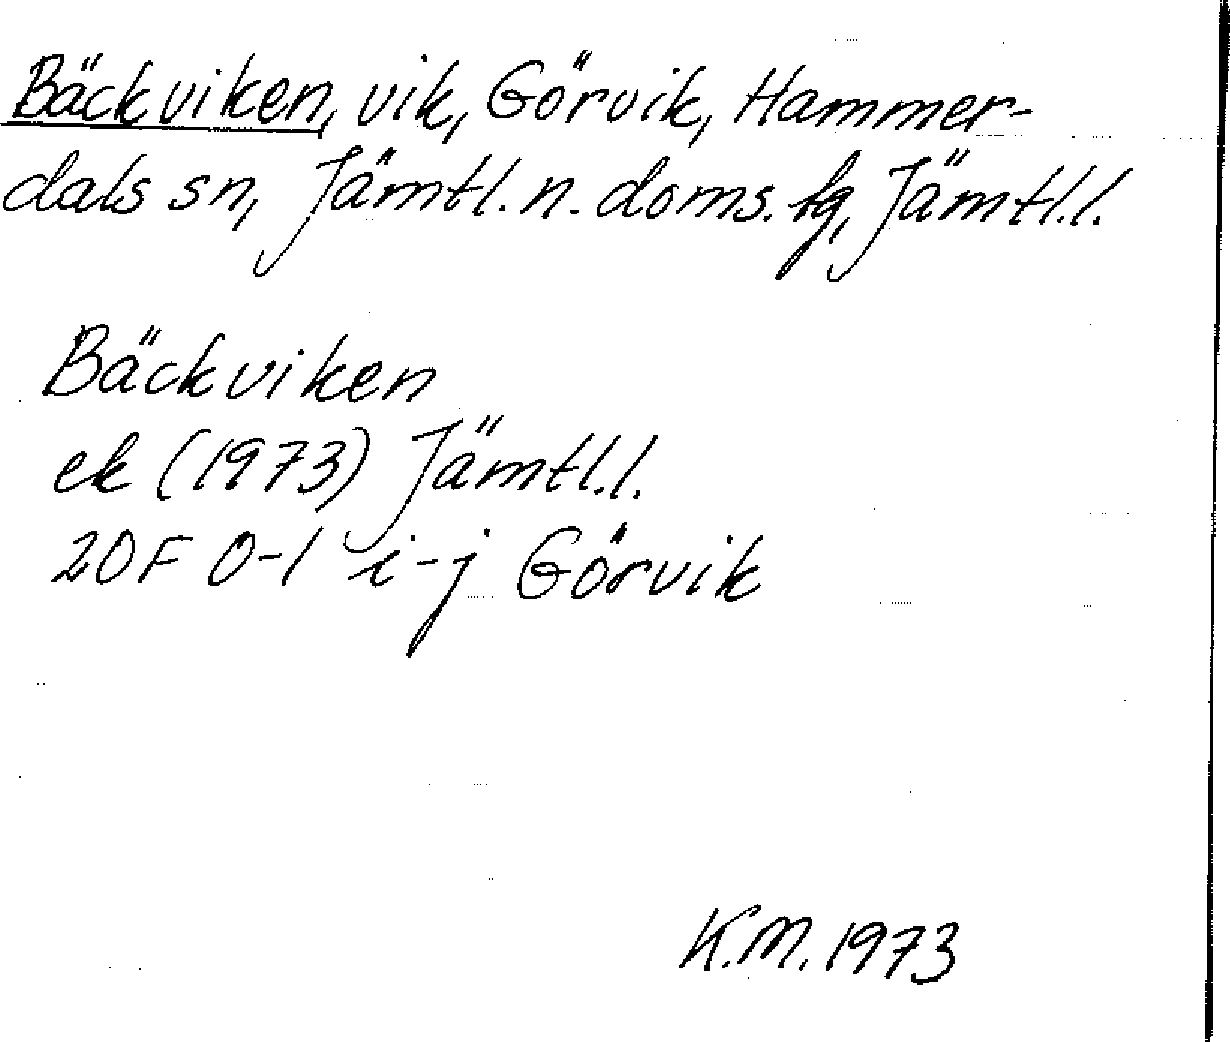 Bäckviken, vik, Görvik, Hammer-
dals sn, Jämtl. n. doms. fg, Jämtl.l.
Bäckviken
ek (1973) Jämtl.l.
20F 0-1 i-j Görvik
K.M. 1973